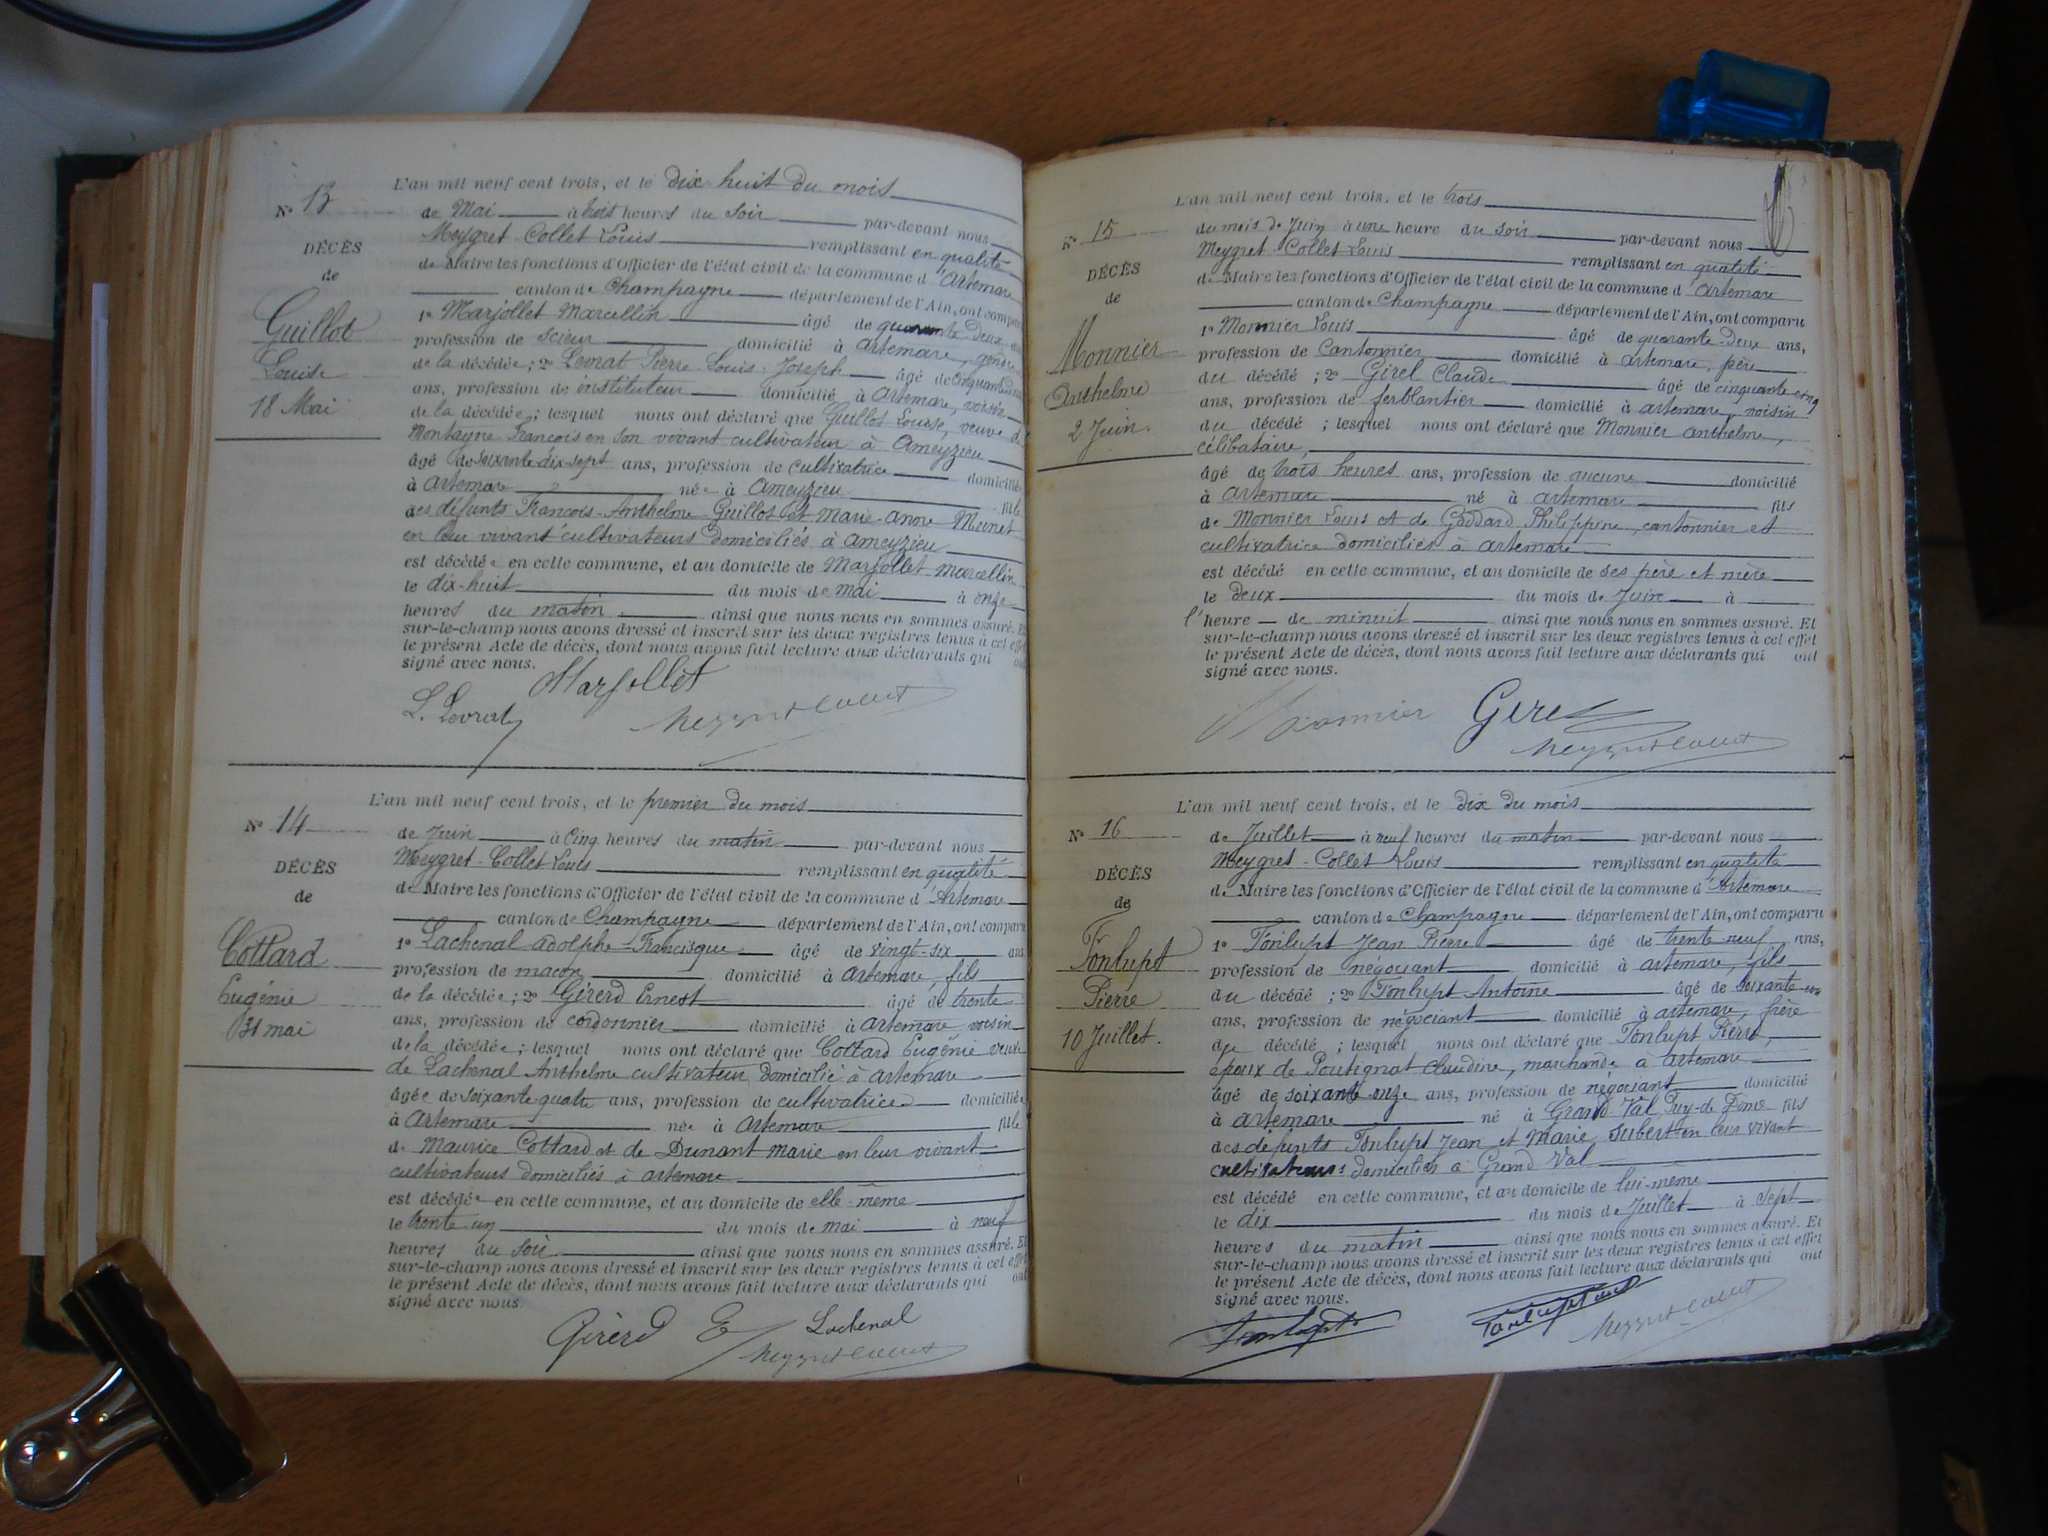 L'an mil neuf cent trois, et le dix-huit du mois
N° 13
de Mai à trois heures du soir par-devant nous
DÉCÈS
Meygret-Collet Louis remplissant en qualité
de
de Maire les fonctions d'Officier de l'état civil de la commune d'Artemare
canton de Champagne département de l'Ain, ont comparu
Guillot
1° Marjollet Marcellin âgé de quarante deux ans
profession de scieur domicilié à Artemare, gendre
Louise
de la décédée; 2° Pierre Louis Joseph âgé de cinquante
18 Mai
ans, profession de instituteur domicilié à Artemare, voisin
de la décédée; lesquel nous ont déclaré que Guillot Louise, veuve de
Montagne François en son vivant cultivateur à Ameyzieu
âgé de soixante dix-sept ans, profession de cultivatrice domiciliée
à Artemare née à Ameyzieu fille
des défunts François-Anthelme Guillot et Marie-Anne Munet
en leur vivant cultivateurs domiciliés à Ameyzieu
est décédée en cette commune, et au domicile de Marjollet Marcellin
le dix-huit du mois de Mai à onze
heures du matin ainsi que nous nous en sommes assuré. Et
sur-le-champ nous avons dressé et inscrit sur les deux registres tenus à cet effet
le présent Acte de décès, dont nous avons fait lecture aux déclarants qui ont
signé avec nous.
Marjollet
L. Levrat
Meygret Collet
L'an mil neuf cent trois, et le premier du mois
N° 14
de Juin à cinq heures du matin par-devant nous
Meygret-Collet Louis remplissant en qualité
DÉCÈS
de Maire les fonctions d'Officier de l'état civil de la commune d'Artemare
de
canton de Champagne département de l'Ain, ont comparu
Cottard
1° Lachenal Adolphe-Francisque âgé de vingt-six ans
profession de maçon domicilié à Artemare, fils
Eugénie
de la décédée; 2° Girerd Ernest âgé de trente
31 mai
ans, profession de cordonnier domicilié à Artemare voisin
de la décédée; lesquel nous ont déclaré que Cottard Eugénie veuve
de Lachenal Anthelme cultivateur domicilié à Artemare
âgée de soixante quatre ans, profession de cultivatrice domiciliée
à Artemare née à Artemare fille
de Maurice Cottard et de Dunant Marie en leur vivant
cultivateurs domiciliés à Artemare
est décédée en cette commune, et au domicile de elle-même
le trente-un du mois de mai à neuf
heures du soir ainsi que nous nous en sommes assuré. Et
sur-le-champ nous avons dressé et inscrit sur les deux registres tenus à cet effet
le présent Acte de décès, dont nous avons fait lecture aux déclarants qui ont
signé avec nous.
Girerd E Lachenal
Meygret Collet
L'an mil neuf cent trois, et le trois
N° 15
du mois de Juin à une heure du soir par-devant nous
Meygret-Collet Louis remplissant en qualité
DÉCÈS
de Maire les fonctions d'Officier de l'état civil de la commune d'Artemare
de
canton de Champagne département de l'Ain, ont comparu
Monnier
1° Monnier Louis âgé de quarante-deux ans,
profession de cantonnier domicilié à Artemare, père
Anthelme
du décédé; 2° Girel Claude âgé de cinquante cinq
ans, profession de ferblantier domicilié à Artemare, voisin
2 Juin.
du décédé; lesquel nous ont déclaré que Monnier Anthelme,
célibataire,
âgé de trois heures ans, profession de aucune domicilié
à Artemare né à Artemare fils
de Monnier Louis et de Goddard Philippine, cantonnier et
cultivatrice domiciliés à Artemare
est décédé en cette commune, et au domicile de ses père et mère
le deux du mois de Juin à
l'heure de minuit ainsi que nous nous en sommes assuré. Et
sur-le-champ nous avons dressé et inscrit sur les deux registres tenus à cet effet
le présent Acte de décès, dont nous avons fait lecture aux déclarants qui ont
signé avec nous.
Monnier Girel
Meygret Collet
L'an mil neuf cent trois, et le dix du mois
N° 16
de Juillet à neuf heures du matin par-devant nous
Meygret-Collet Louis remplissant en qualité
DÉCÈS
de Maire les fonctions d'Officier de l'état civil de la commune d'Artemare
de
canton de Champagne département de l'Ain, ont comparu
Fonlupt
1° Fonlupt Jean Pierre âgé de trente neuf ans,
profession de négociant domicilié à Artemare, fils
Pierre
du décédé; 2° Fonlupt Antoine âgé de soixante
10 Juillet.
ans, profession de négociant domicilié à Artemare, frère
du décédé; lesquel nous ont déclaré que Fonlupt Pierre,
époux de Poutignat Claudine, marchande à Artemare
âgé de soixante onze ans, profession de négociant domicilié
à Artemare né à Grand-Val, Puy-de-Dôme fils
des défunts Fonlupt Jean et Marie Jubert en leur vivant
cultivateurs domiciliés à Grand Val
est décédé en cette commune, et au domicile de lui-même
le dix du mois de Juillet à sept
heures du matin ainsi que nous nous en sommes assuré. Et
sur-le-champ nous avons dressé et inscrit sur les deux registres tenus à cet effet
le présent Acte de décès, dont nous avons fait lecture aux déclarants qui ont
signé avec nous.
Fonlupt Fonlupt
Meygret Collet